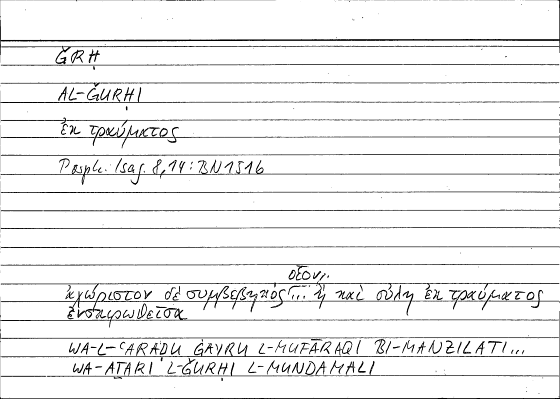 ǦRḤ
AL-ǦURḤI
ἐκ τραύματος
Porph. Isag. 8,14: BN151b
οἷον
ἀχώριστον δὲ συμβεβηκός ... ἢ καὶ οὐλὴ ἐκ τραύματος
ἐνσκιρωθεῖσα
WA-L-ʿARAḌU ĠAYRU L-MUFĀRAQI BI-MANZILATI...
WA-AṮARI L-ǦURḤI L-MUNDAMALI